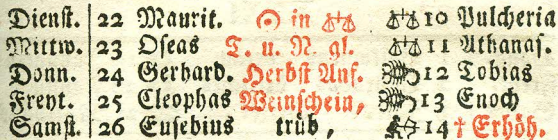 Dienst. 22 Maurit. ☉ in ♎ ♎ 10 Pulcheria
Mittw. 23 Oseas T. u. N. gl. ♎ 11 Athanas.
Donn. 24 Gerhard. Herbst Anf. ♏ 12 Tobias
Freyt. 25 Cleophas Weinschein, ♏ 13 Enoch
Samst. 26 Eusebius trüb, ♐ 14 † Erhöh.